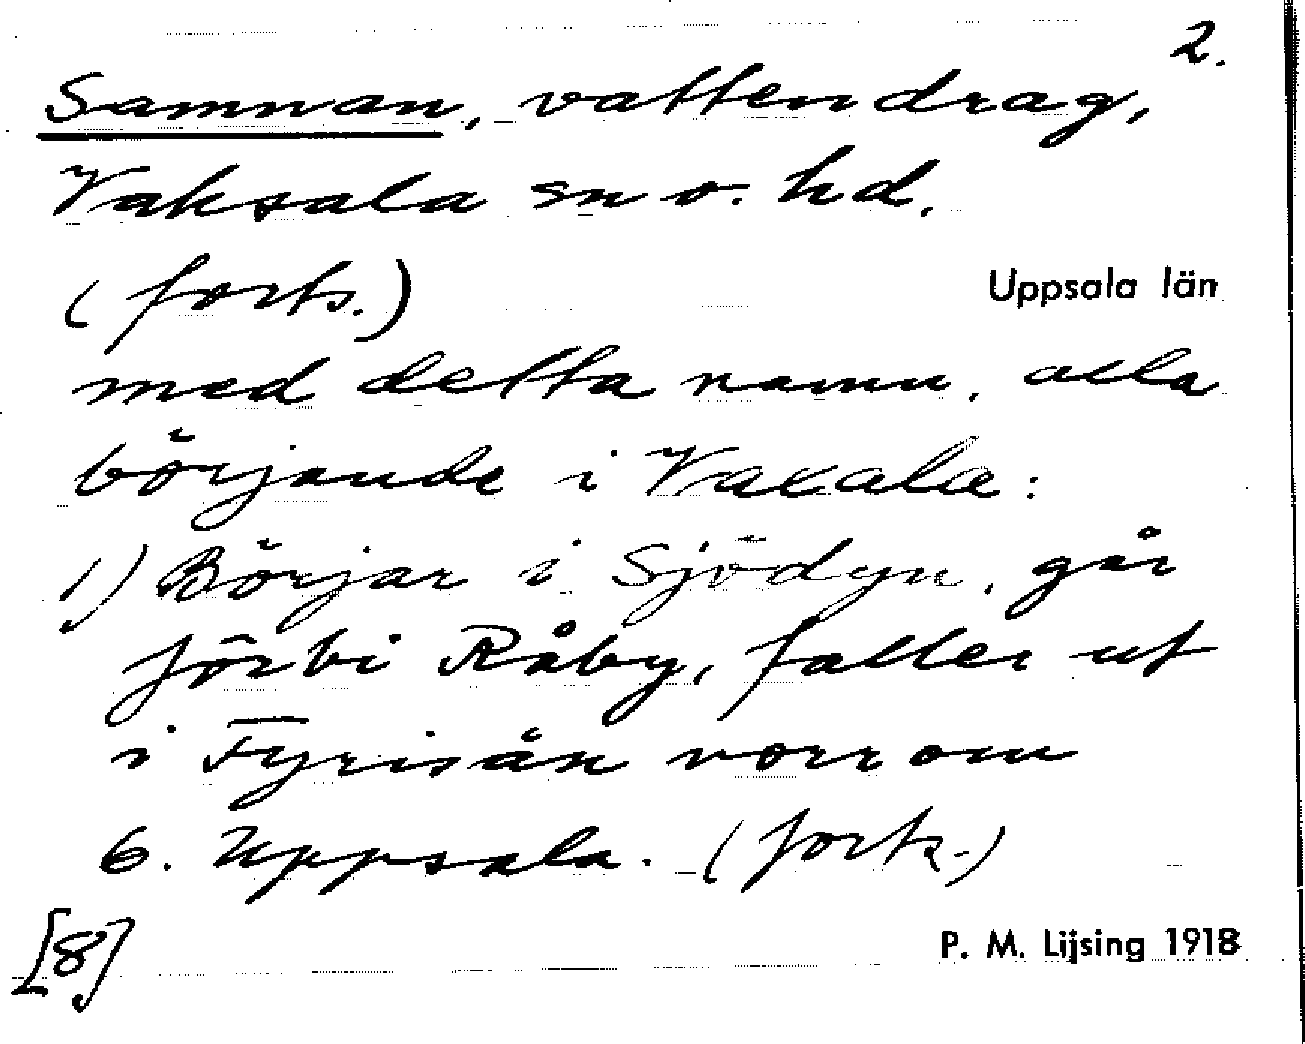 2.
Samnan, vattendrag,
Vaksala sn o. hd.
(forts.)
Uppsala län
med detta namn, alla
börjande i Vaxala:
1) Börjar i Sjödyn, går
förbi Råby, faller ut
i Fyrisån norr om
G. Uppsala. (forts.)
[8]
P. M. Lijsing 1918